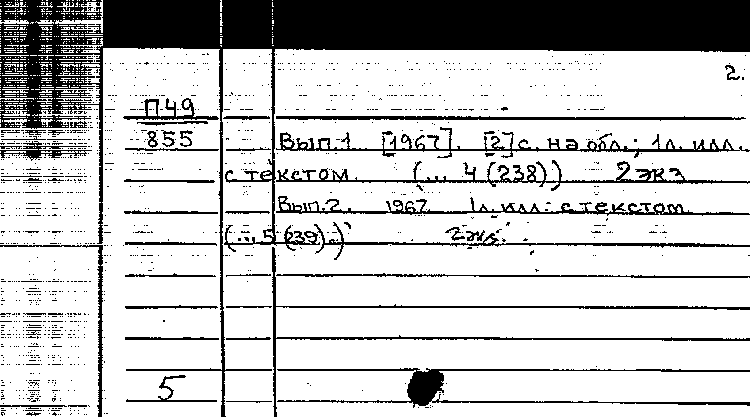 2.
П49
855
Вып.1 [1967]. [2] с. на обл.; 1л. илл.
с текстом. (... 4 (238)) 2 экз
Вып.2. 1967. 1л. илл. с текстом
(... 5 (239).) 2 экз.
5